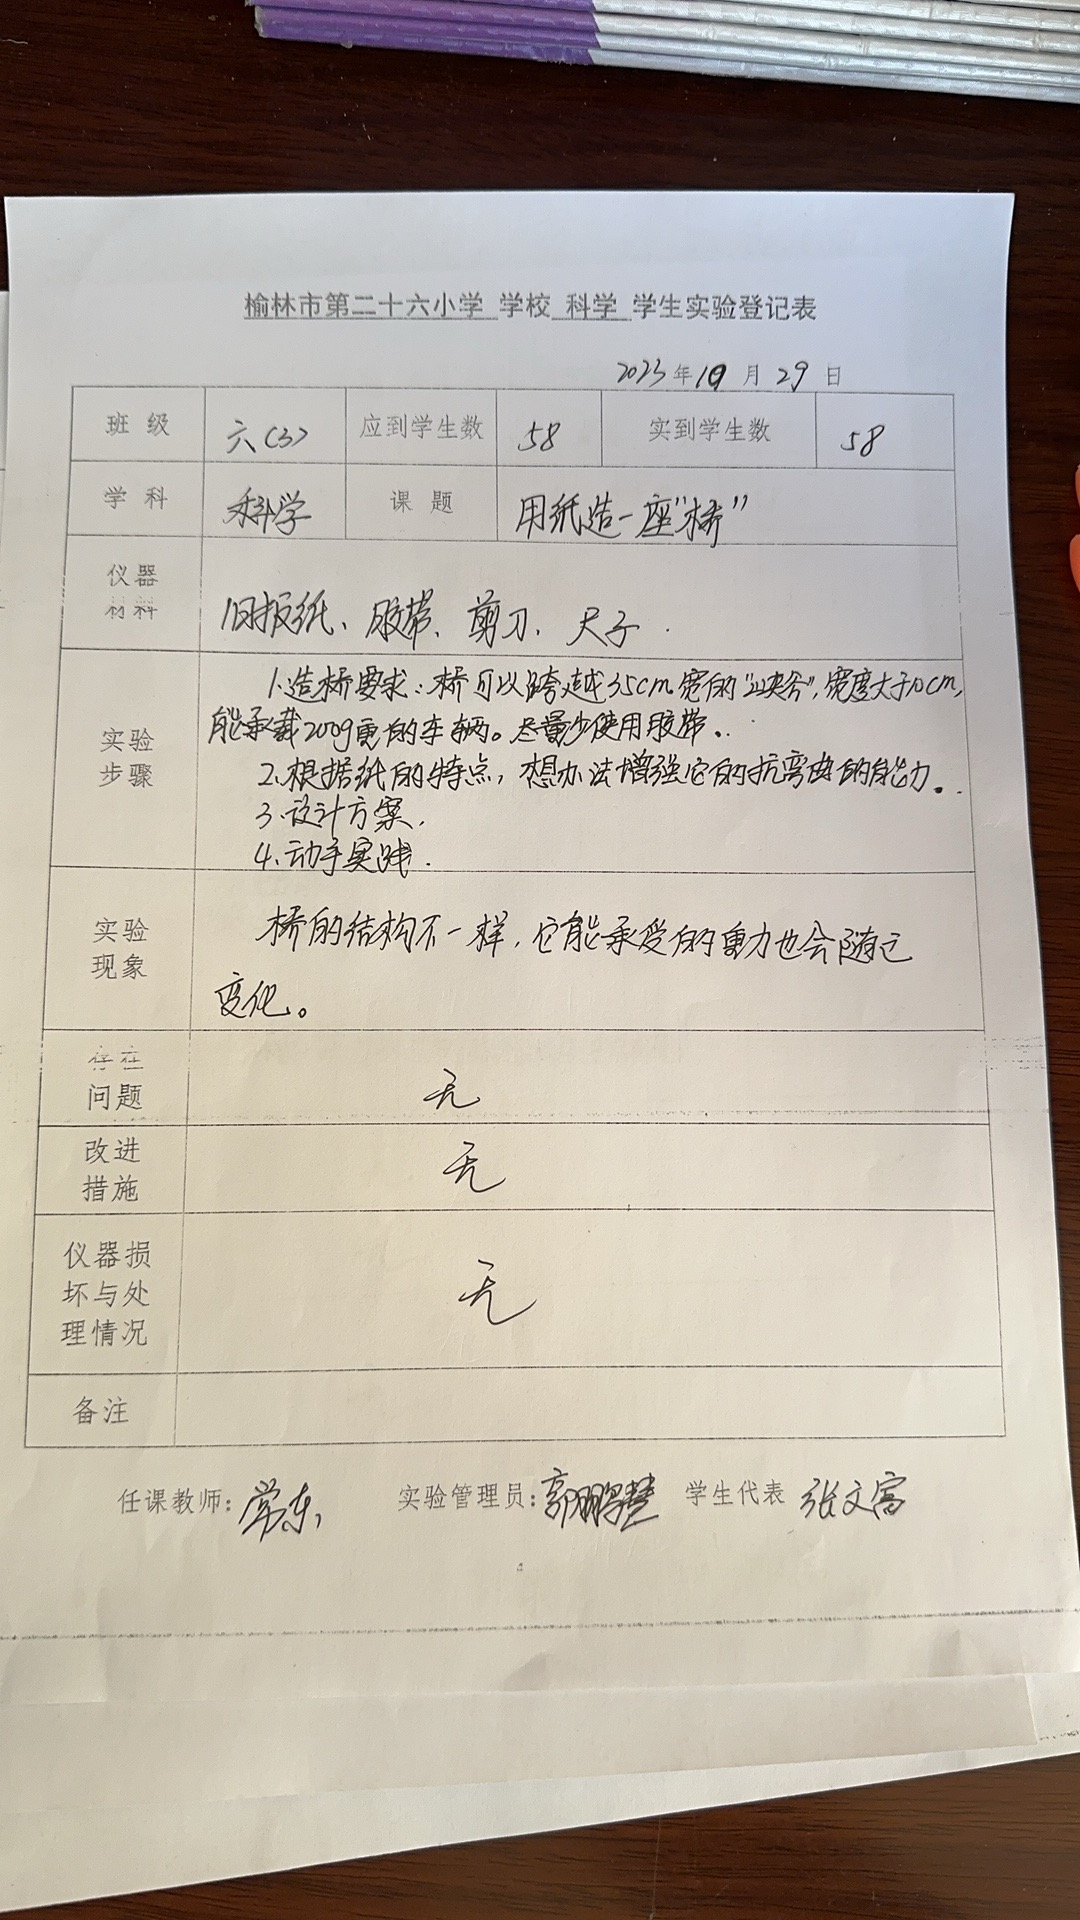 榆林市第二十六小学 学校 科学 学生实验登记表
2023年10月29日
班级 六(3) 应到学生数 58 实到学生数 58
学科 科学 课题 用纸造一座“桥”
仪器材料 旧报纸、胶带、剪刀、尺子.
实验步骤
1.造桥要求:桥可以跨越35cm宽的“峡谷”,宽度大于10cm,
能承载200g重的车辆。尽量少使用胶带。
2.根据纸的特点,想办法增强它的抗弯曲的能力。
3.设计方案.
4.动手实践.
实验现象
桥的结构不一样,它能承受的重力也会随之
变化。
存在问题 无
改进措施 无
仪器损坏与处理情况 无
备注
任课教师:常东 实验管理员:郭鹏慧 学生代表 张文富